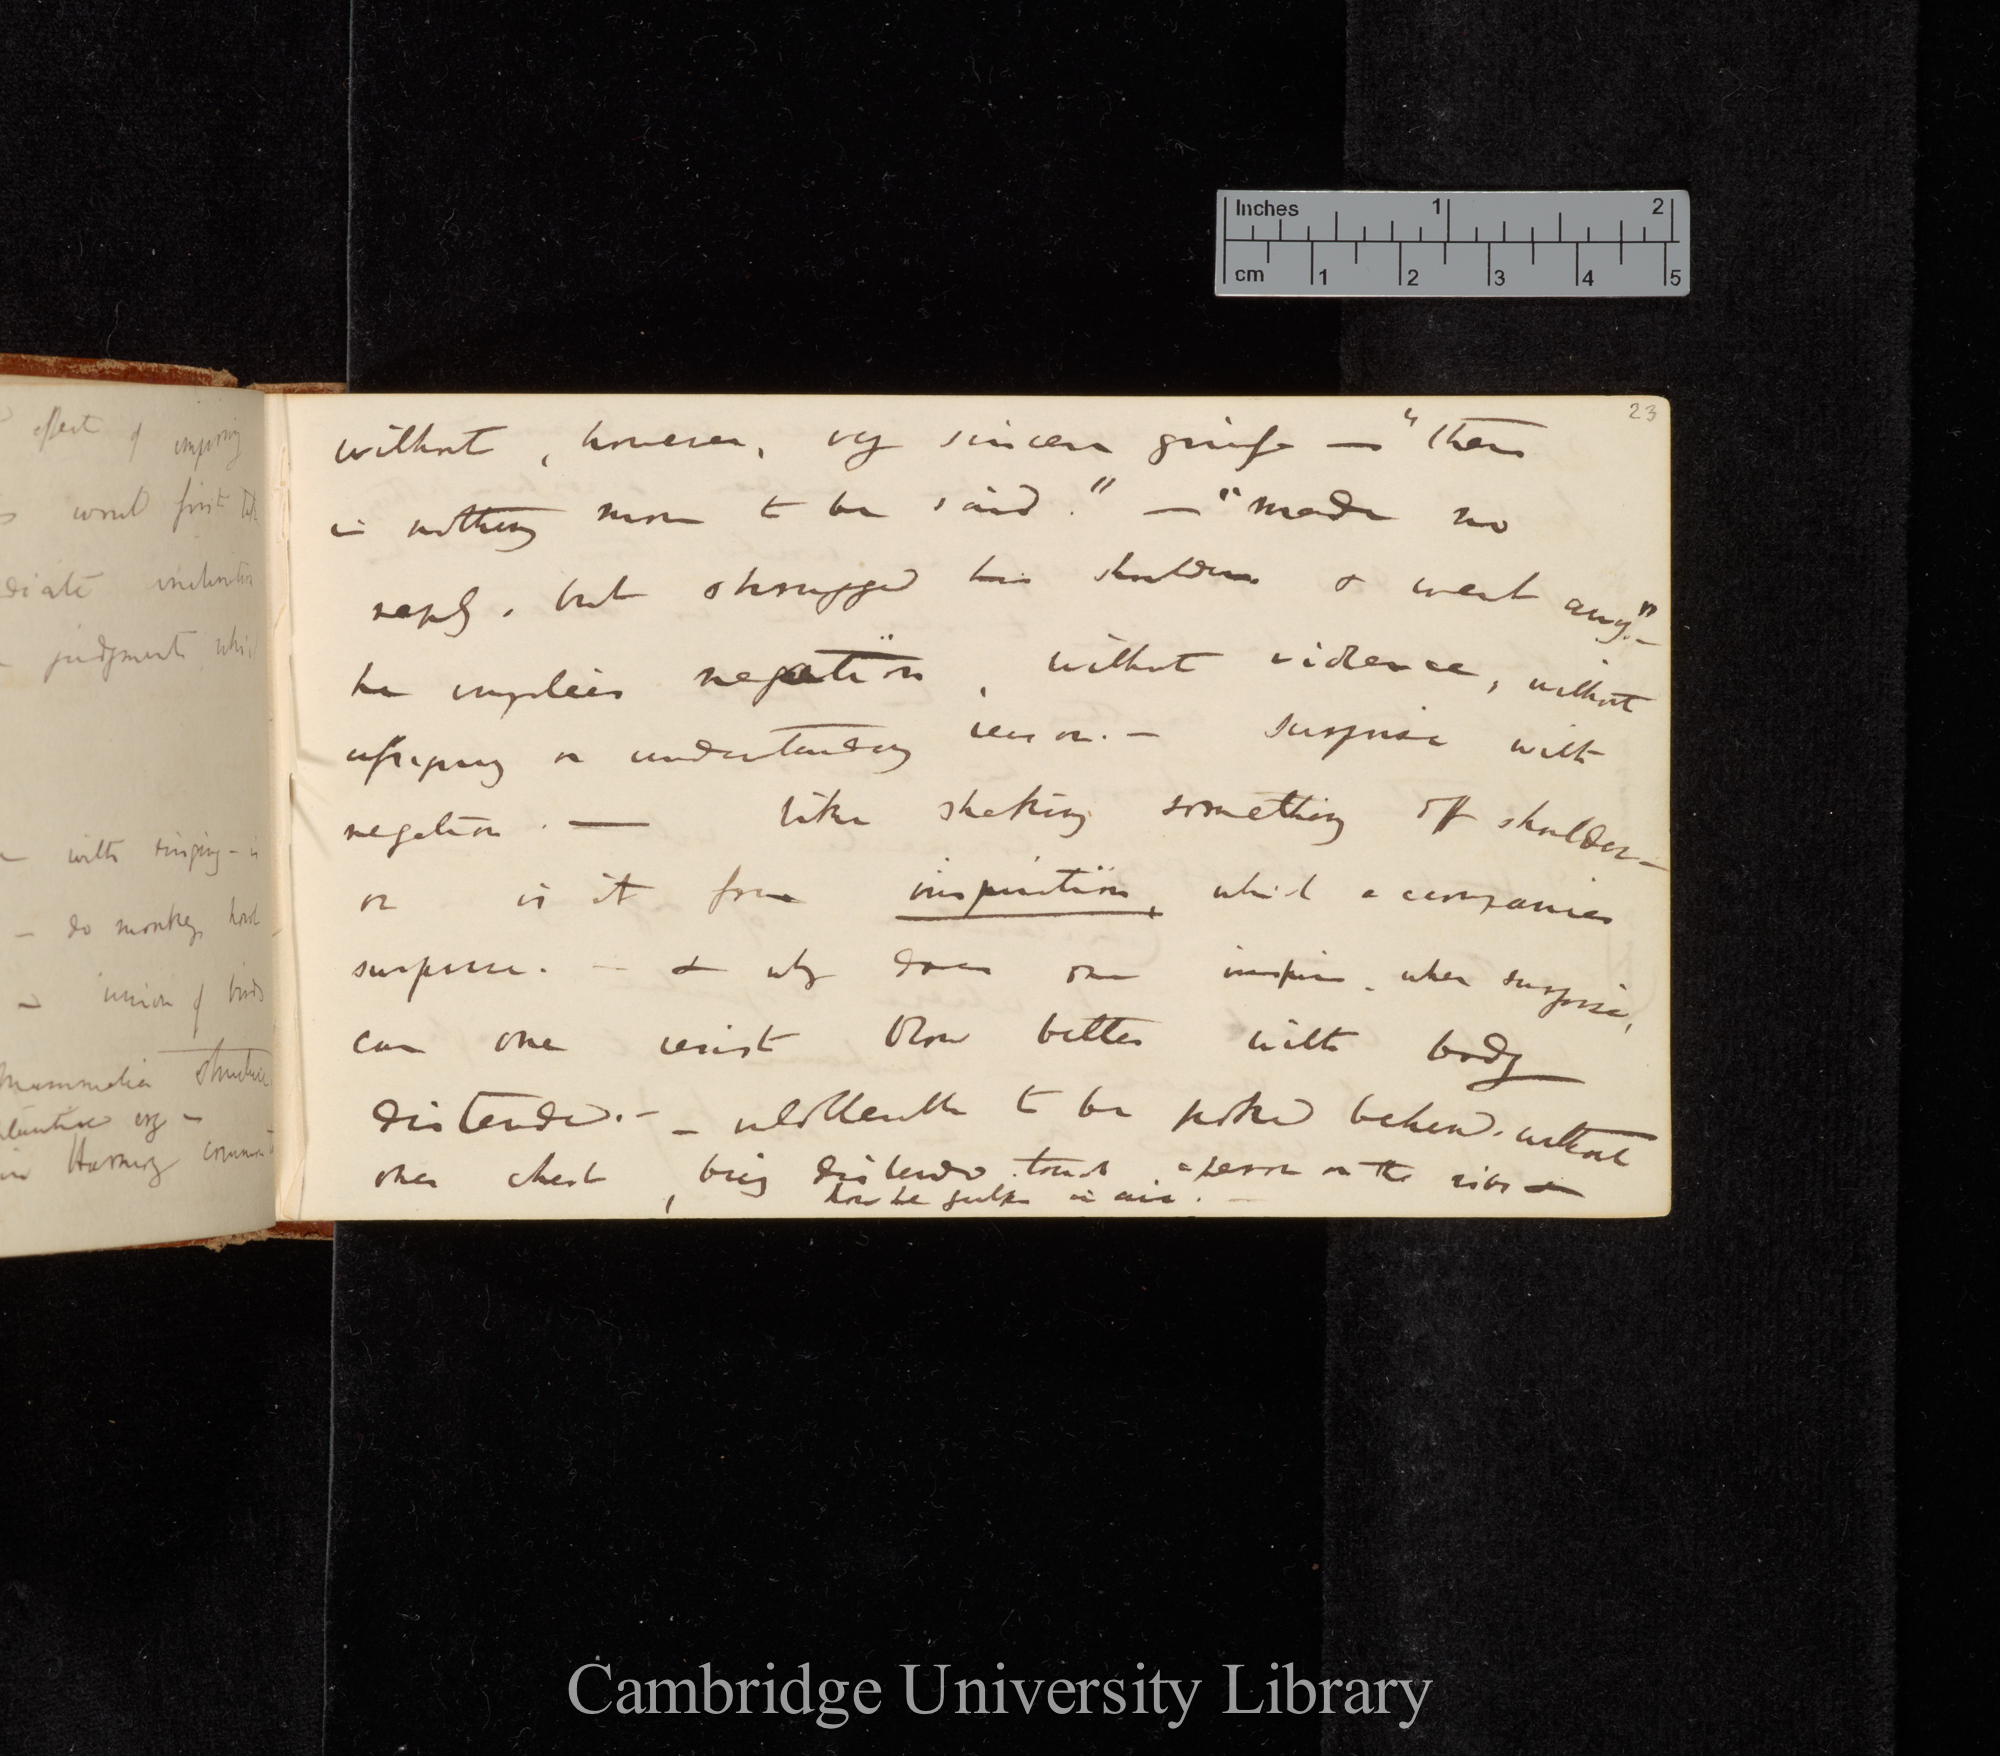 effect of
would first
diate
judgments which
with singing - is
- do monkeys howl
- union of birds
Mammalia structure
in Harmony
Inches 1 2
cm 1 2 3 4 5
23
without, however, very sincere grief — "there
is nothing more to be said." — "made no
reply, but shrugged his shoulders & went away" —
he implies negation, without violence, without
or understanding reason. — surprise with
negation. — like shaking something off shoulder —
or is it from inspiration, which accompanies
surprise. — & why does one inspire, when surprise,
can one resist blow better with body
distended. — to be poked behind, without
ones chest, being distended. touch a person on the ribs &
how he gulps in air. —
Cambridge University Library